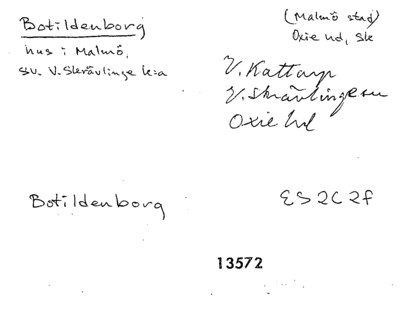 Botildenborg
hus i Malmö,
sv. V. Skrävlinge k:a
(Malmö stad)
Oxie hd, Sk
V. Kattarp
V. Skrävlinge sn
Oxie hd
Botildenborg
ES 2C 2f
13572